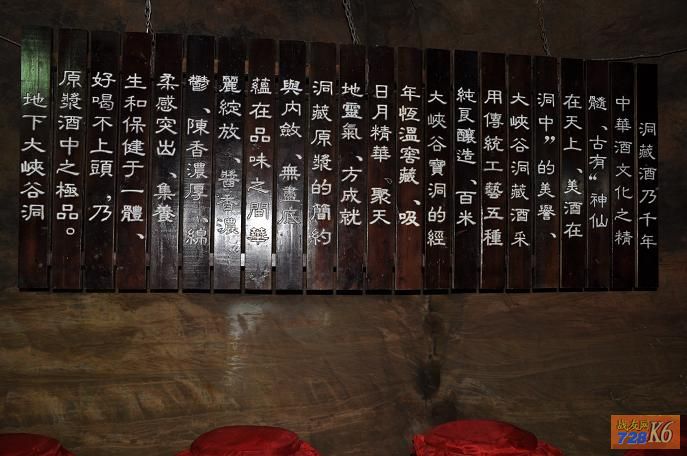 洞藏酒乃千年
中華酒文化之精
髓、古有“神仙
在天上、美酒在
洞中”的美譽、
大峽谷洞藏酒采
用傳統工藝五種
純良釀造、百米
大峽谷寶洞的經
年恆溫窖藏、吸
日月精華、聚天
地靈氣、方成就
洞藏原漿的簡約
與內斂、無盡底
蘊在品味之間華
麗綻放、醬香濃
鬱、陳香濃厚、綿
柔感突出、集養
生和保健于一體、
好喝不上頭,乃
原漿酒中之極品。
地下大峽谷洞
战友网
728K6